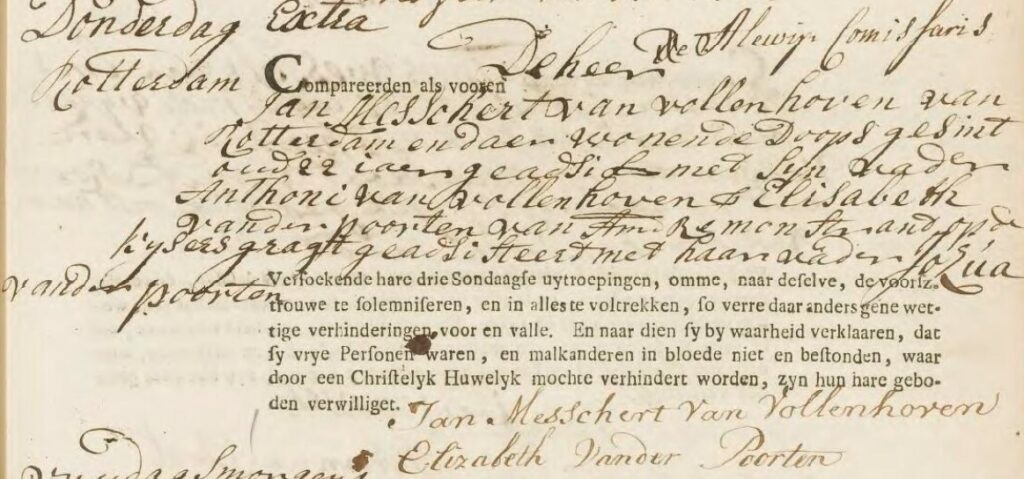 Donderdag Extra
De heer De Alewijn Comissaris
Rotterdam Compareerden als vooren
Jan Messchert van vollenhoven van
Rotterdam en daer wonende Doops gesint
oud 22 iaer geadsist met Syn vader
Anthoni van vollenhoven & Elisabeth
vander poorten van Am Remonstrand op de
kysersgragt geadsisteert met haar vader JoZua
vander poorten
Versoekende hare drie Sondaagse uytroepingen, omme, naar deselve, de voorsz.
trouwe te solemniseren, en in alles te voltrekken, so verre daar anders gene wet-
tige verhinderingen voor en valle. En naar dien sy by waarheid verklaaren, dat
sy vrye Personen waren, en malkanderen in bloede niet en bestonden, waar
door een Christelyk Huwelyk mochte verhindert worden, zyn hun hare gebo-
den verwilliget.
Jan Messchert Van Vollenhoven
Elizabeth Vander Poorten